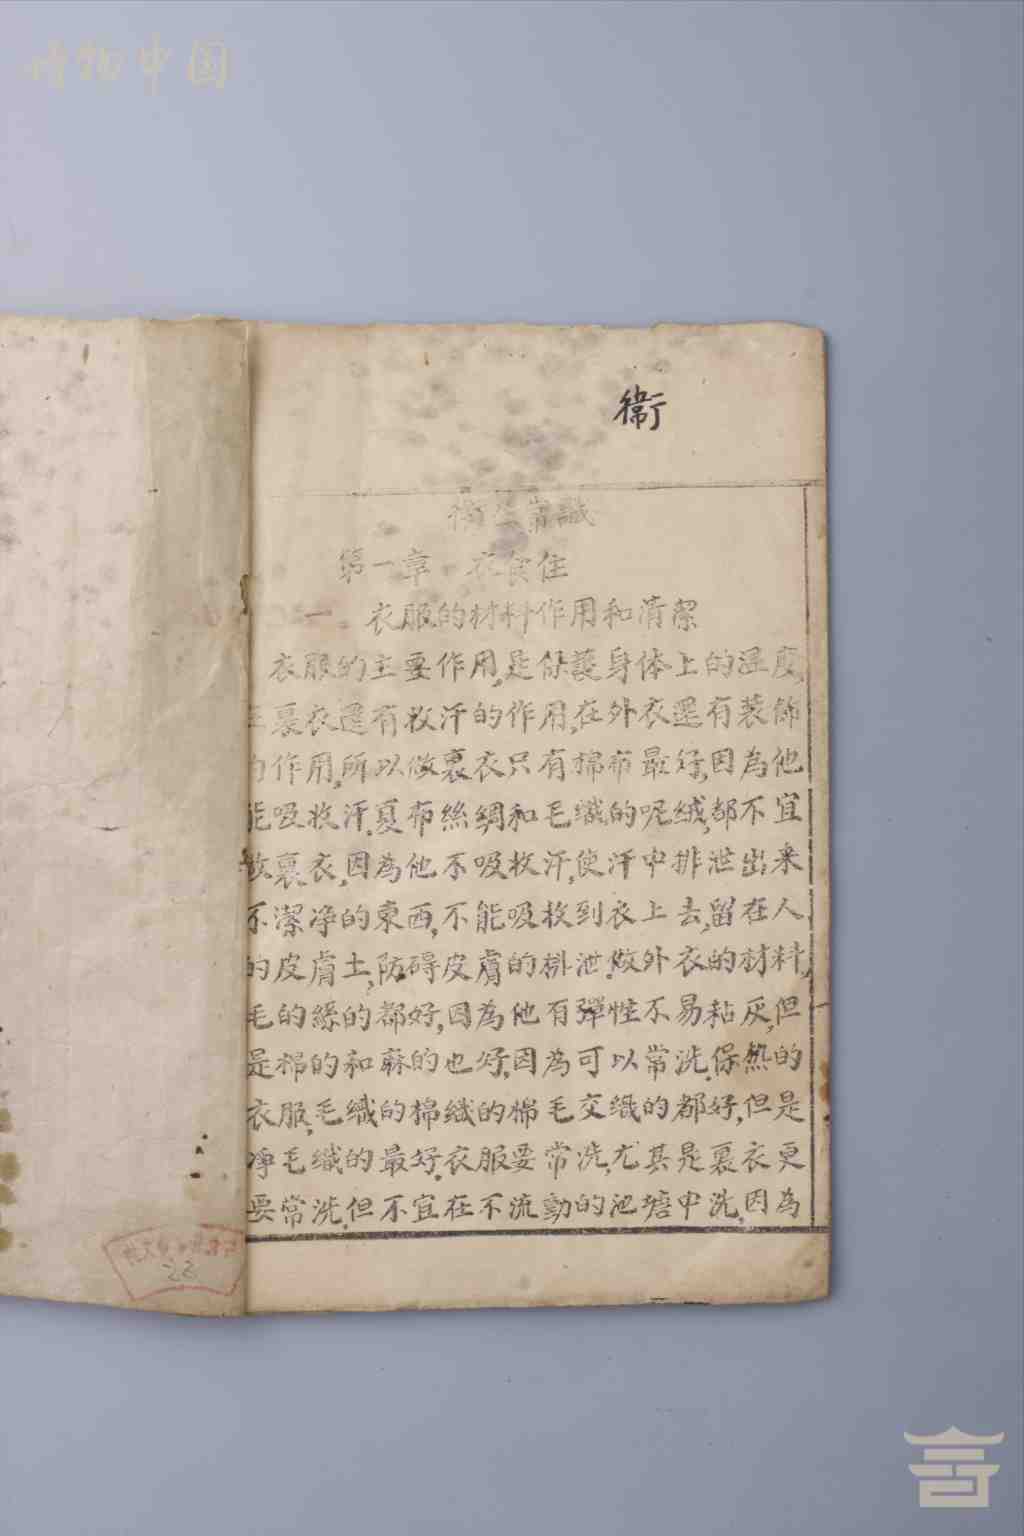 博物中国
衞
衞生常識
第一章 衣食住
一. 衣服的材料作用和清潔
衣服的主要作用,是保護身体上的溫度,
裏衣還有收汗的作用,在外衣還有裝飾
的作用,所以做裏衣只有棉布最好,因為他
能吸收汗.夏布絲綢和毛織的呢絨,都不宜
做裏衣,因為他不吸收汗,使汗中排泄出来
不潔净的東西,不能吸收到衣上去,留在人
的皮膚土,防碍皮膚的排泄.做外衣的材料,
毛的絲的都好,因為他有彈性不易粘灰,但
是棉的和麻的也好,因為可以常洗.保热的
衣服,毛織的棉織的棉毛交織的都好,但是
净毛織的最好.衣服要常洗,尤其是裏衣更
要常洗,但不宜在不流動的池塘中洗,因為
22